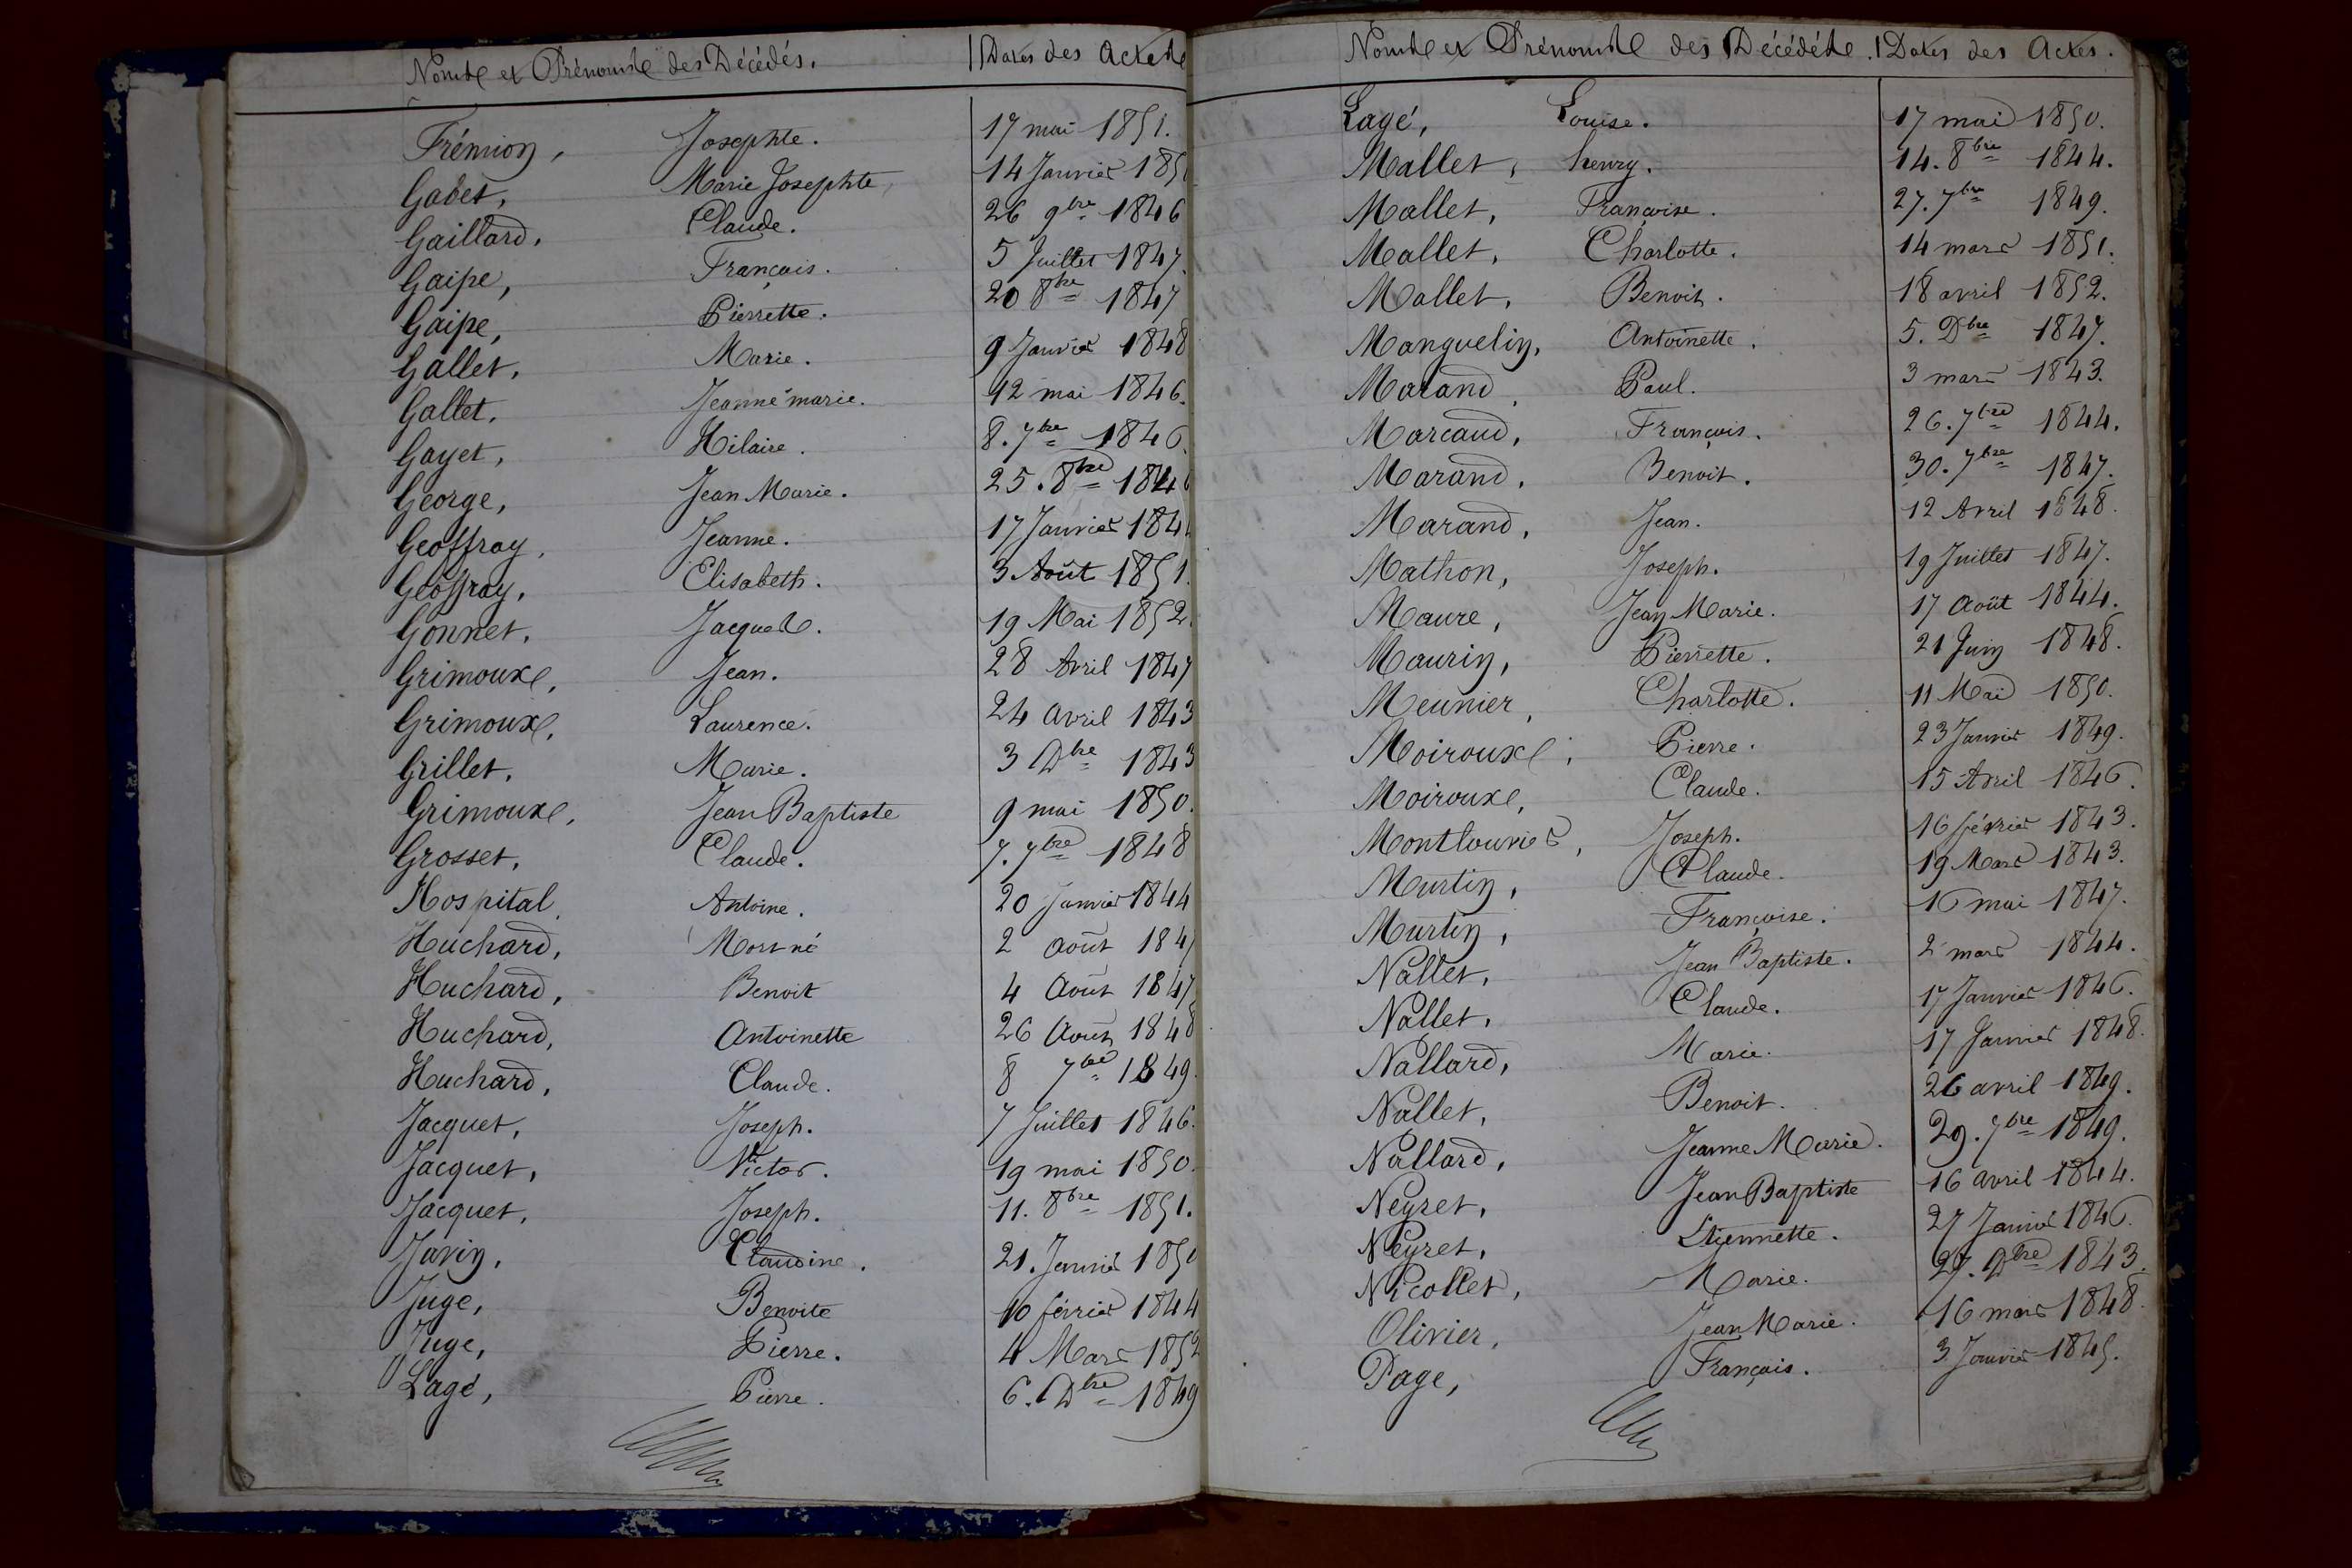 Noms et Prénoms des Décédés. Dates des Actes
Frémion, Josephte. 17 mai 1851.
Gabet, Marie Josephte, 14 Janvier 185
Gaillard, Claude. 26 9bre 1846
Gaipe, François. 5 Juillet 1847.
Gaipe, Pierrette. 20 8bre 1847
Gallet, Marie. 9 Janvier 1848
Gallet, Jeanne marie. 12 mai 1846.
Gayet, Hilaire. 8. 7bre 1846.
George, Jean Marie. 25. 8bre 1846
Geoffray, Jeanne. 17 Janvier 184
Geoffray, Elisabeth. 3 Août 1851.
Gonnet, Jacques. 19 Mai 1852
Grimoux, Jean. 28 Avril 1847
Grimoux, Laurence. 24 avril 1843
Grillet, Marie. 3 Dbre 1843
Grimoux, Jean Baptiste 9 mai 1850.
Grosset, Claude. 7. 7bre 1848
Hospital, Antoine. 20 Janvier 1844
Huchard, Mort né 2 août 184
Huchard, Benoit 4 Août 1847
Huchard, Antoinette 26 Août 1848
Huchard, Claude. 8 7bre 1849.
Jacquet, Joseph. 7 Juillet 1846.
Jacquet, Victor. 19 mai 1850.
Jacquet, Joseph. 11. 8bre 1851.
Javin, Claudine. 21. Janvier 1850
Juge, Benoite 10 février 1844
Juge, Pierre. 4 Mars 1852
Lagé, Pierre. 6. Dbre 1849
Noms et Prénoms des Décédés. Dates des Actes.
Lagé, Louise. 17 mai 1850.
Mallet, henry. 14. 8bre 1844.
Mallet, Françoise. 27. 7bre 1849.
Mallet, Charlotte. 14 mars 1851.
Mallet, Benoit. 18 avril 1852.
Manguelin, Antoinette. 5. Dbre 1847.
Marand, Paul. 3 mars 1843.
Marcaud, François. 26. 7bre 1844.
Marand, Benoit. 30. 7bre 1847.
Marand, Jean. 12 Avril 1848.
Mathon, Joseph. 19 Juillet 1847.
Maure, Jean Marie. 17 Août 1844.
Maurin, Pierrette. 21 Juin 1848.
Meunier, Charlotte. 11 Mai 1850.
Moiroux, Pierre. 23 Janvier 1849.
Moiroux, Claude. 15 Avril 1846.
Montlouvier, Joseph. 16 février 1843.
Murtin, Claude. 19 Mars 1843.
Murtin, Françoise. 16 mai 1847.
Nallet, Jean Baptiste. 2 mars 1844.
Nallet, Claude. 17 Janvier 1846.
Nallard, Marie. 17 Janvier 1848.
Nallet, Benoit. 26 avril 1849.
Nallard, Jeanne Marie. 29. 7bre 1849.
Neyret, Jean Baptiste 16 avril 1844.
Neyret, Etiennette. 27 Janvier 1846.
Nicollet, Marie. 27. Dbre 1843.
Olivier, Jean Marie. 16 mars 1848.
Page, François. 3 Janvier 1845.